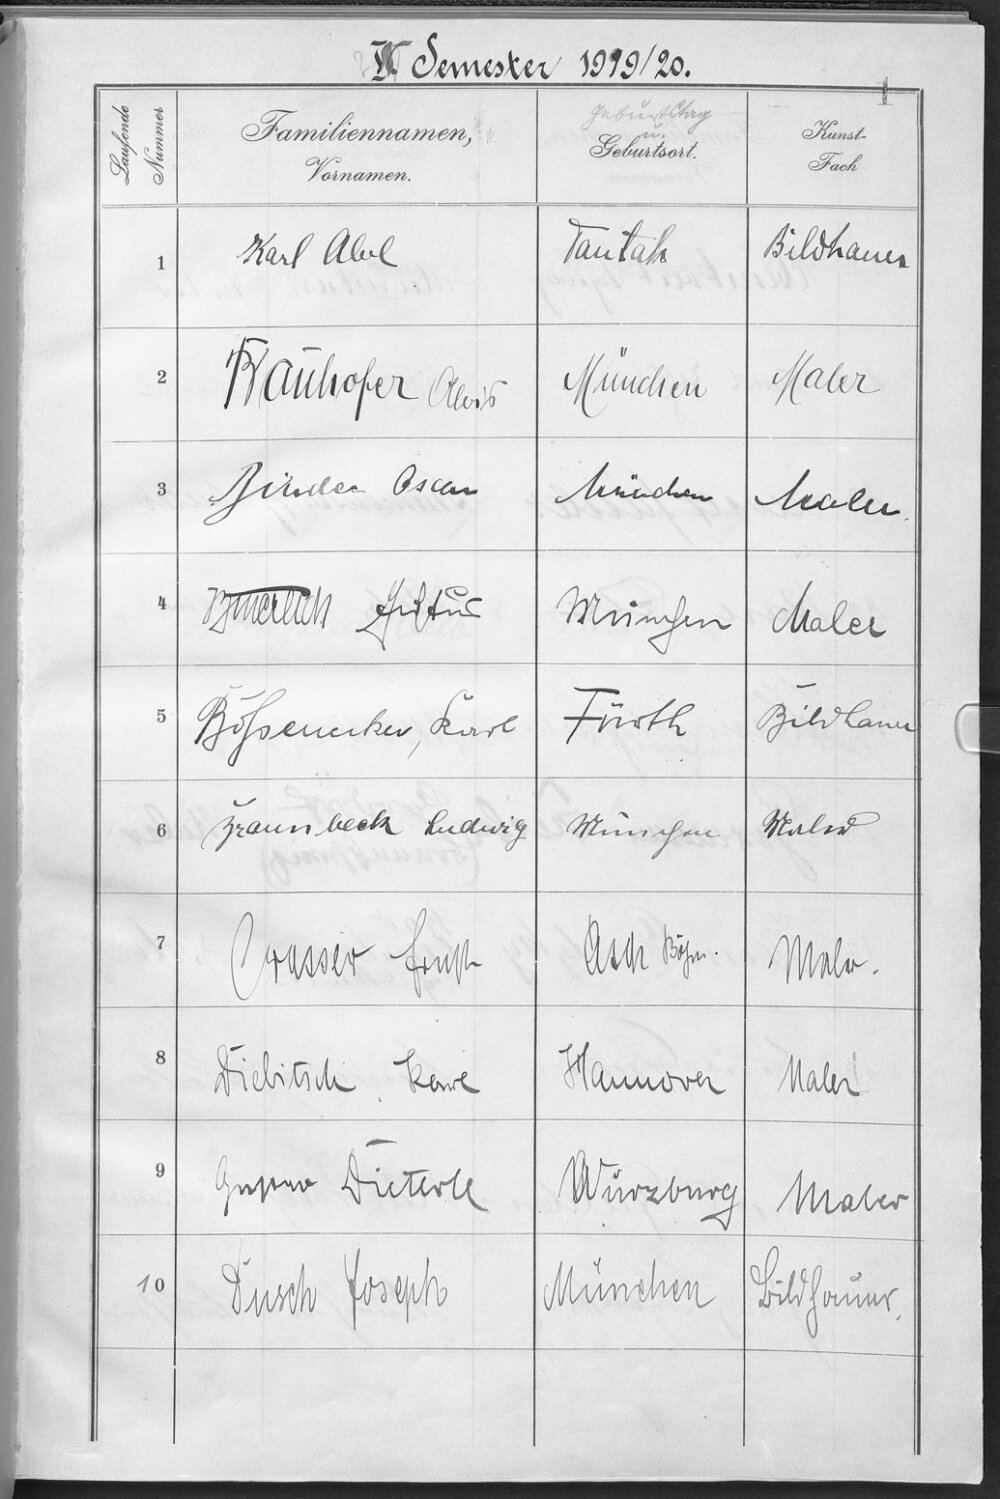 Semester 1919/20.
Laufende Nummer
Familiennamen, Vornamen.
Geburtstag u. Geburtsort.
Kunst-Fach
1 Karl Abel Tantah Bildhauer
2 Bauhofer Alois München Maler
3 Binder Oscar München Maler
4 München Maler
5 Karl Fürth Bildhauer
6 Braunbeck Ludwig München Maler
7 Crasser Ernst Asch Böhm. Maler.
8 Diebitsch Karl Hannover Maler
9 Gustav Dieterle Würzburg Maler
10 Dusch Joseph München Bildhauer.